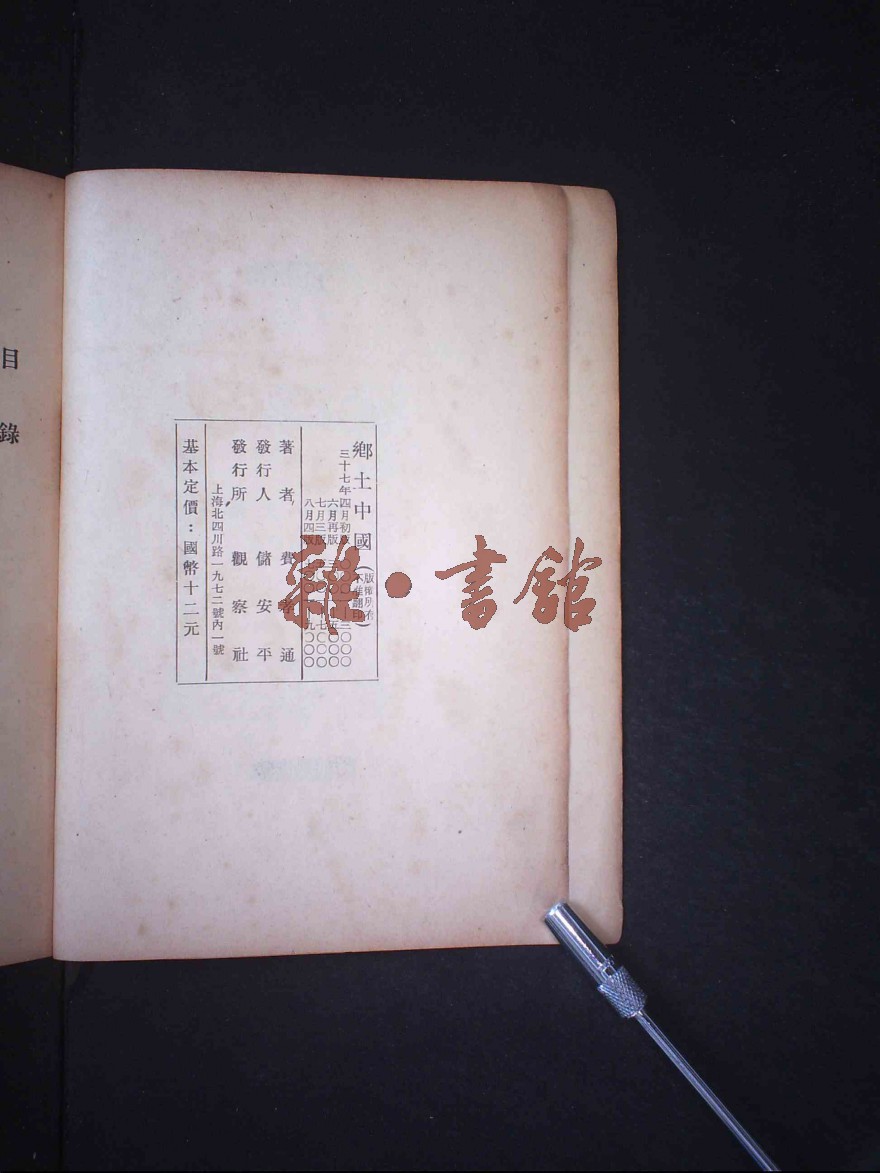 鄉土中國
(版權所有
不准翻印)
三十七年四月初版
六月再版
七月三版
八月四版
著者 費孝通
發行人 儲安平
發行所 觀察社
上海北四川路一九七二號內一號
基本定價：國幣十二元
目錄
雜•書館